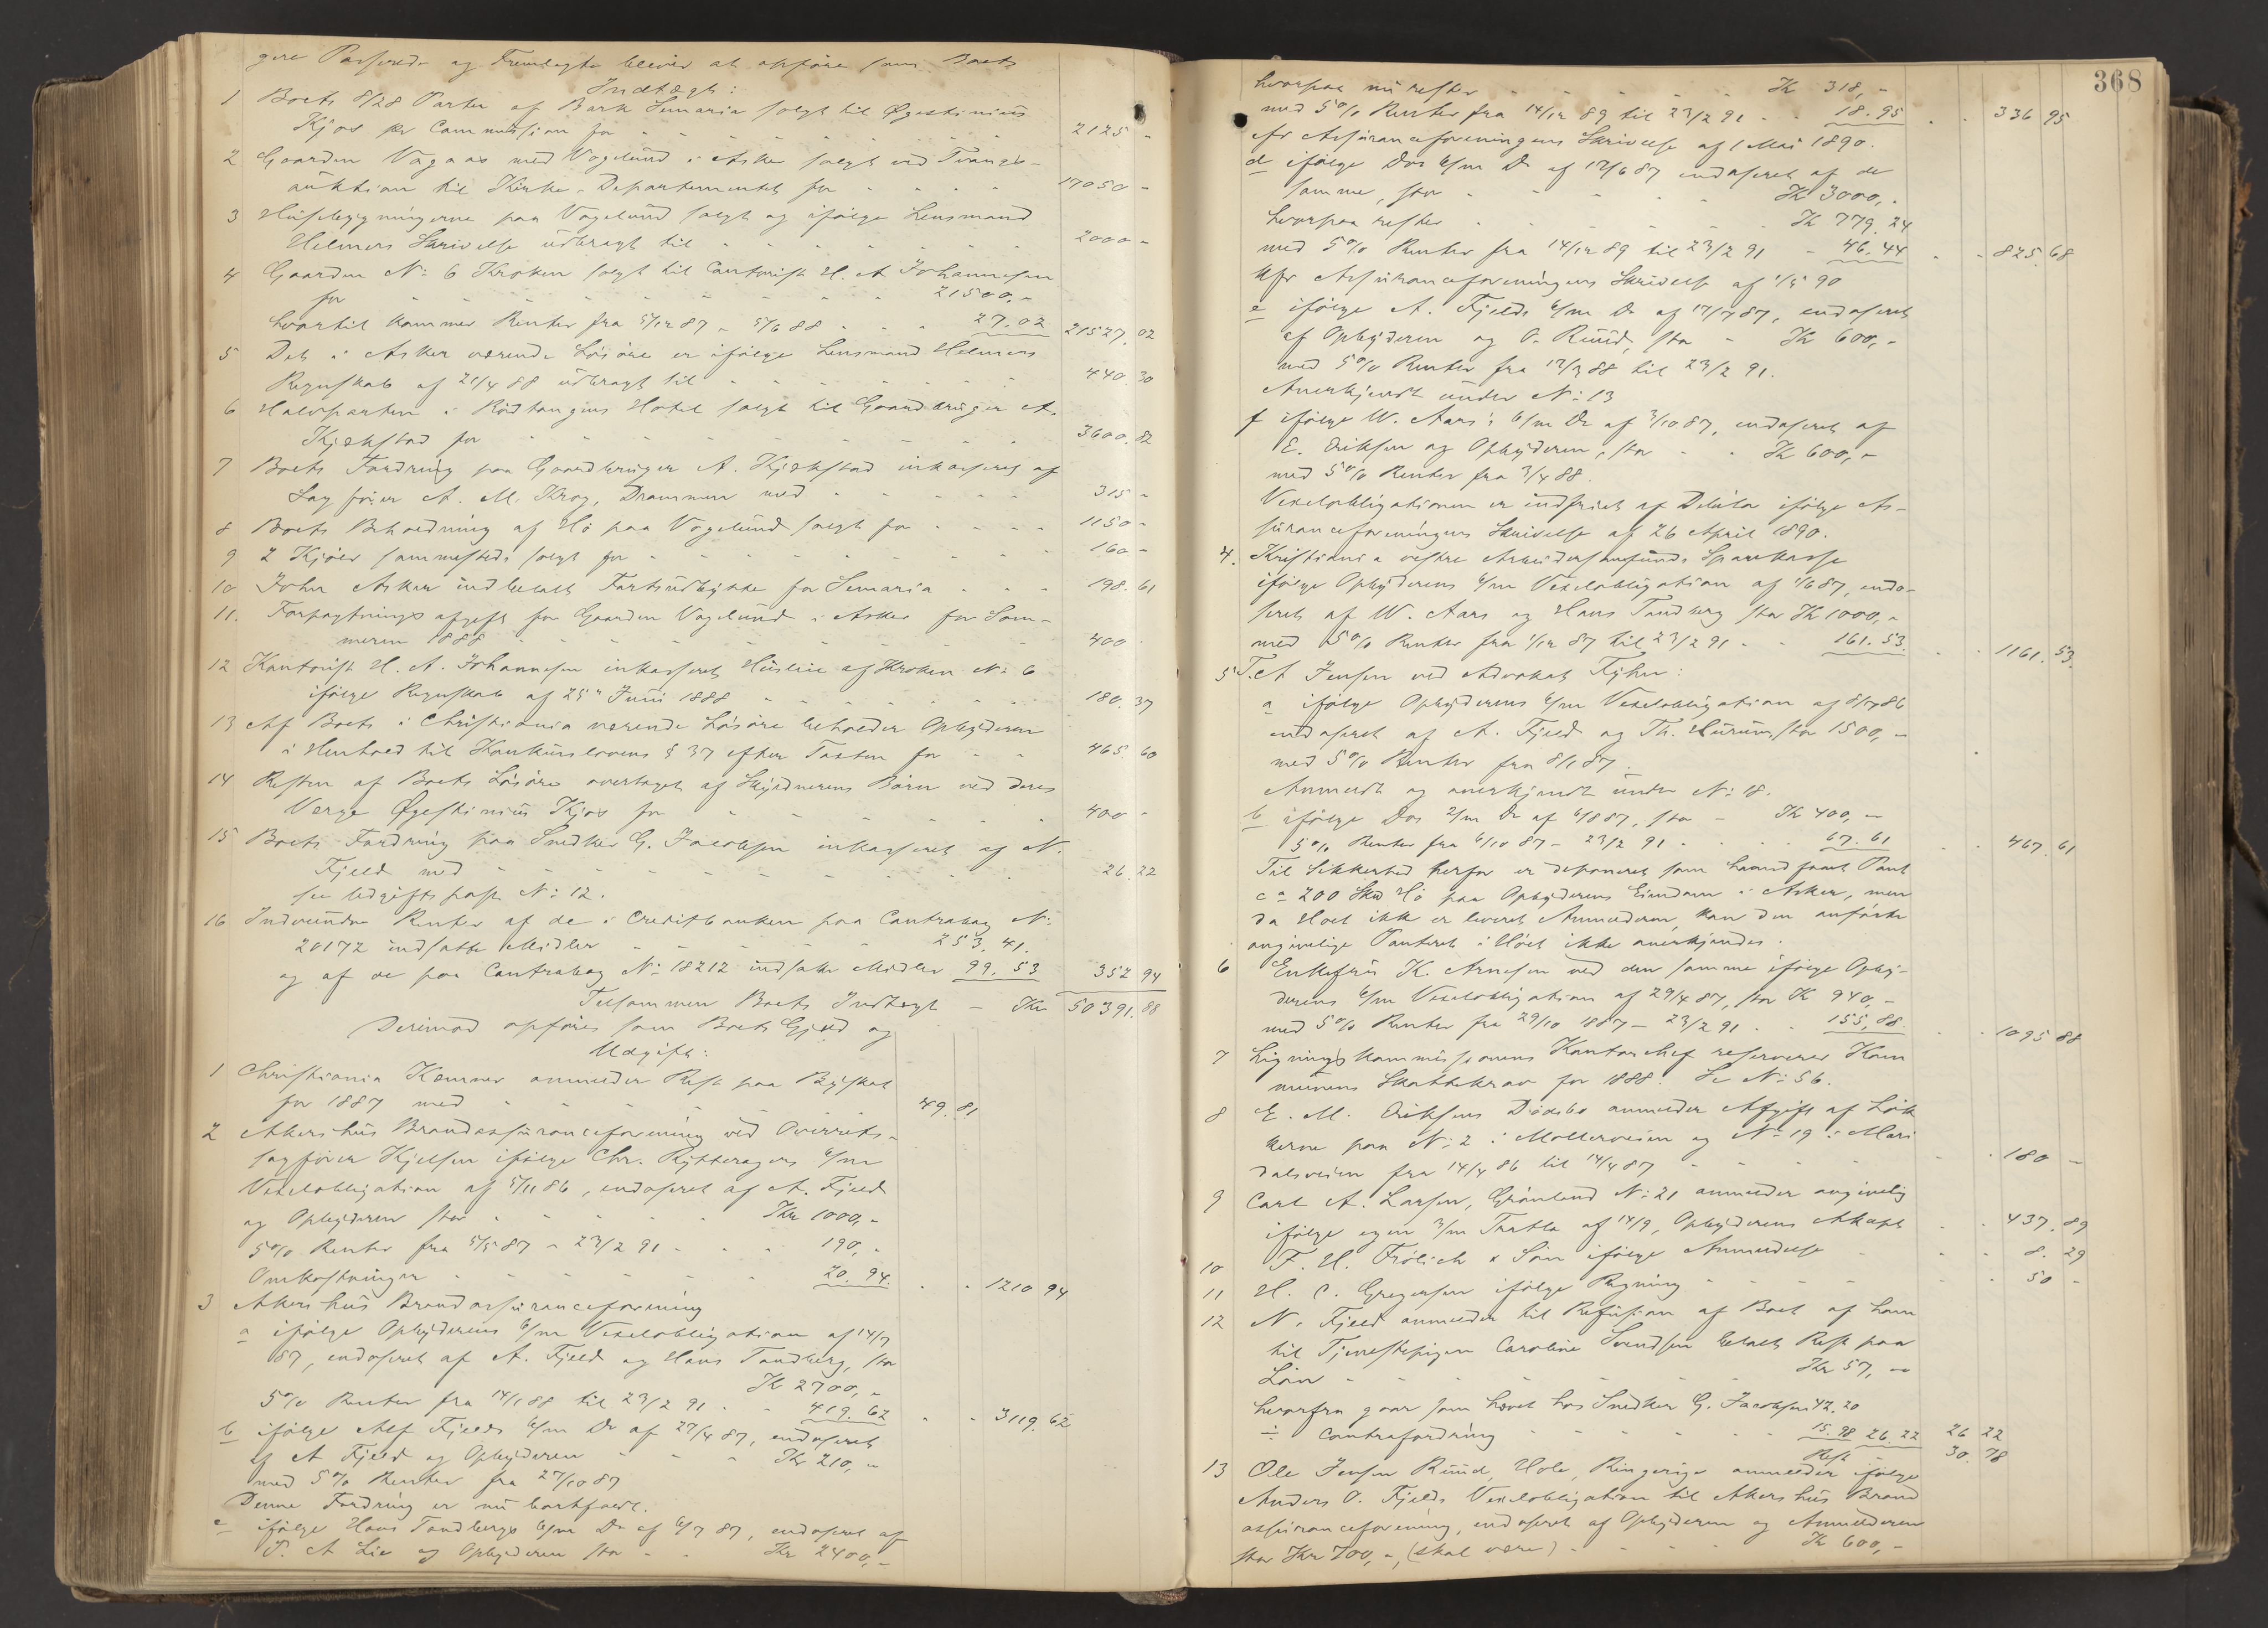 gere Passerede og Fremlagte bliver at opføre som Boets
Indtægt:
1 Boets 8/28 Parter af Bark Semaria solgt til Øgestinius
Kjos pr Commission for - - - 2125 -
2 Gaarden Vagaas med Vogelund i Asker solgt ved Tvangs-
auktion til Kirke-Departementet for - - - 17050 -
3 Husebygningerne paa Vogelund solgt og ifølge Lensmand
Helmers Skrivelse udbragt til - - - 2000 -
4 Gaarden No 6 Kroken solgt til Cantorist H. A Johannesen
for - - - 21500,-
hvortil kommer Renter fra 5/12 87 - 5/6 88 - - - 27.02 21527.02
5 Det i Asker værende Løsøre er ifølge Lensmand Helmers
Regnskab af 21/4 88 udbragt til - - - 440.30
6 Halvparten i Rødtangens Hotel solgt til Gaardbruger A.
Kjekstad for - - - 3600.82
7 Boets Fordring paa Gaardbruger A. Kjekstad inkasseret af
Sagfører A. M. Krog, Drammen med - - - 315 -
8 Boets Beholdning af Hø paa Vogelund solgt for - - - 1150 -
9 2 Kjøer sammesteds solgt for - - - 160 -
10 John Asker indbetalt Fartsudbytte for Semaria - - - 198.61
11. Forpagtningsafgift for Gaarden Vogelund i Asker for Som-
meren 1888 - - - 400 -
12 Kantorist H. A. Johannesen inkasseret Husleie af Kroken No 6
ifølge Regnskab af 25de Juni 1888 - - - 180.37
13 Af Boets i Christiania værende Løsøre beholder Opbyderen
i Henhold til Konkurslovens § 37 efter Taxten for - - 465.60
14 Resten af Boets Løsøre overtaget af Skyldnerens Børn ved deres
Verge Øgestinius Kjos for - - - 400 -
15 Boets Fordring paa Snedker G. Jacobsen inkasseret af N.
Fjeld med - - - 26.22
se Udgiftspost No 12.
16 Indvundne Renter af de i Creditbanken paa Contrabog No
20172 indsatte Midler - - - 253.41.
og af de paa Contrabog No 18212 indsatte Midler 99.53 352 94
Tilsammen Boets Indtægt - Kr 50391.88
Derimod opføres som Boets Gjeld og
Udgift:
1 Christiania Kæmner anmelder Rest paa Byskat
for 1887 med - - - 49.81
2 Akershus Brandassuranceforening ved Overrets-
sagfører Kjelsen ifølge Chr. Rytteragers 6/m
Vexelobligation af 5/11 86, endosseret af A. Fjeld
og Opbyderen stor - - - Kr 1000,-
5% Renter fra 5/5 87 - 23/2 91 - - - 190,-
Omkostninger - - - 20.94. - - 1210 94
3 Akershus Brandassuranceforening
a ifølge Opbyderens 6/m Vexelobligation af 14/7
87, endosseret af A. Fjeld og Hans Tandberg, stor
Kr 2700,-
5% Renter fra 14/1 88 til 23/2 91 - - 419.62 - - 3119.62
b ifølge Alf Fjelds 6/m Do af 27/4 87, endosseret
af A Fjeld og Opbyderen - - - Kr 210,-
med 5% Renter fra 27/10 87
Denne Fordring er nu bortfaldt.
c ifølge Hans Tandbergs 6/m Do af 6/7 87, endosseret af
T. A Lie og Opbyderen stor - - Kr 2400,-
368
hvorpaa nu rester - - - Kr 318,-
med 5% Renter fra 14/12 89 til 23/2 91 - - 18.95 - - 336 95
cfr Assuranceforeningens Skrivelse af 1 Mai 1890.
d ifølge Dos 6/m Do af 17/6 87 endosseret af de
samme, stor - - - Kr 3000,-
hvorpaa rester - - - Kr 779.24
med 5% Renter fra 14/12 89 til 23/2 91 - 46.44 - - 825.68
Cfr Assuranceforeningens Skrivelse af 1/5 90
e ifølge A. Fjelds 6/m Do af 17/9 87, endosseret
af Opbyderen og O. Ruud, stor - Kr 600,-
med 5% Renter fra 17/3 88 til 23/2 91.
Anerkjendt under No 13
f ifølge W. Aars's 6/m Do af 3/10 87, endosseret af
E. Eriksen og Opbyderen, stor - - Kr 600,-
med 5% Renter fra 3/4 88.
Vexelobligationen er indfriet af Debitor ifølge As-
suranceforeningens Skrivelse af 26 April 1890.
4. Kristiania vestre Arbeidersamfunds Sparekasse
ifølge Opbyderens 6/m Vexelobligation af 1/6 87, endo-
seret af W. Aars og Hans Tandberg stor Kr 1000,-
med 5% Renter fra 1/12 87 til 23/2 91 - - 161.53. - - 1161.53.
5 T. A Jensen ved Advokat Fyhn:
a ifølge Opbyderens 6/m Vexelobligation af 8/7 86
endosseret af A. Fjeld og Th. Hurum, stor 1500,-
med 5% Renter fra 8/1 87.
Anmeldt og anerkjendt under No 18.
b ifølge Dos 2/m Do af 6/8 87, stor - Kr 400,-
5% Renter fra 6/10 87 - 23/2 91 - - - 67.61 - - 467.61
Til Sikkerhed herfor er deponeret som haandfaaet Pant
ca 200 Skd Hø paa Opbyderens Eiendom i Asker, men
da Høet ikke er leveret Anmelderen, kan den anførte
angivelige Panteret i Høet ikke anerkjendes.
6 Enkefru K. Arnesen ved den samme ifølge Opby-
derens 6/m Vexelobligation af 29/4 87, stor Kr 940,-
med 5% Renter fra 29/10 1887 - 23/2 91 - - 155,88. - - 1095 88
7 Ligningskommissionens Kontorchef reserverer Kom
munens Skattekrav for 1888. Se No 56.
8 E. M. Eriksens Dødsbo anmelder Afgift af Løk
kerne paa No 2 i Møllerveien og No 19 i Mari
dalsveien fra 14/4 86 til 14/4 87 - - - 180 -
9 Carl A. Larsen, Grønland No 21 anmelder angivelig
ifølge egen 3/m Tratta af 14/9, Opbyderens Akcept - - 437.89
10 F. H. Frölich & Søn ifølge Anmeldelse - - - 8.29
11 H. C. Gregersen ifølge Regning - - - 50 -
12 N. Fjeld anmelder til Refusion af Boet af ham
til Tjenestepigen Caroline Svendsen betalt Rest paa
Løn - - - Kr 57,-
hvorfra gaar som hævet hos Snedker G. Jacobsen 42.20
÷ Contrafordring - - - 15.98 26.22 26 22
Rest - 30.78
13 Ole Jensen Ruud, Hole, Ringerige anmelder ifølge
Anders O. Fjelds Vexelobligation til Akershus Brand
assuranceforening, endosseret af Opbyderen og Anmelderen
stor Kr 700,-, (skal være) - - - Kr 600,-